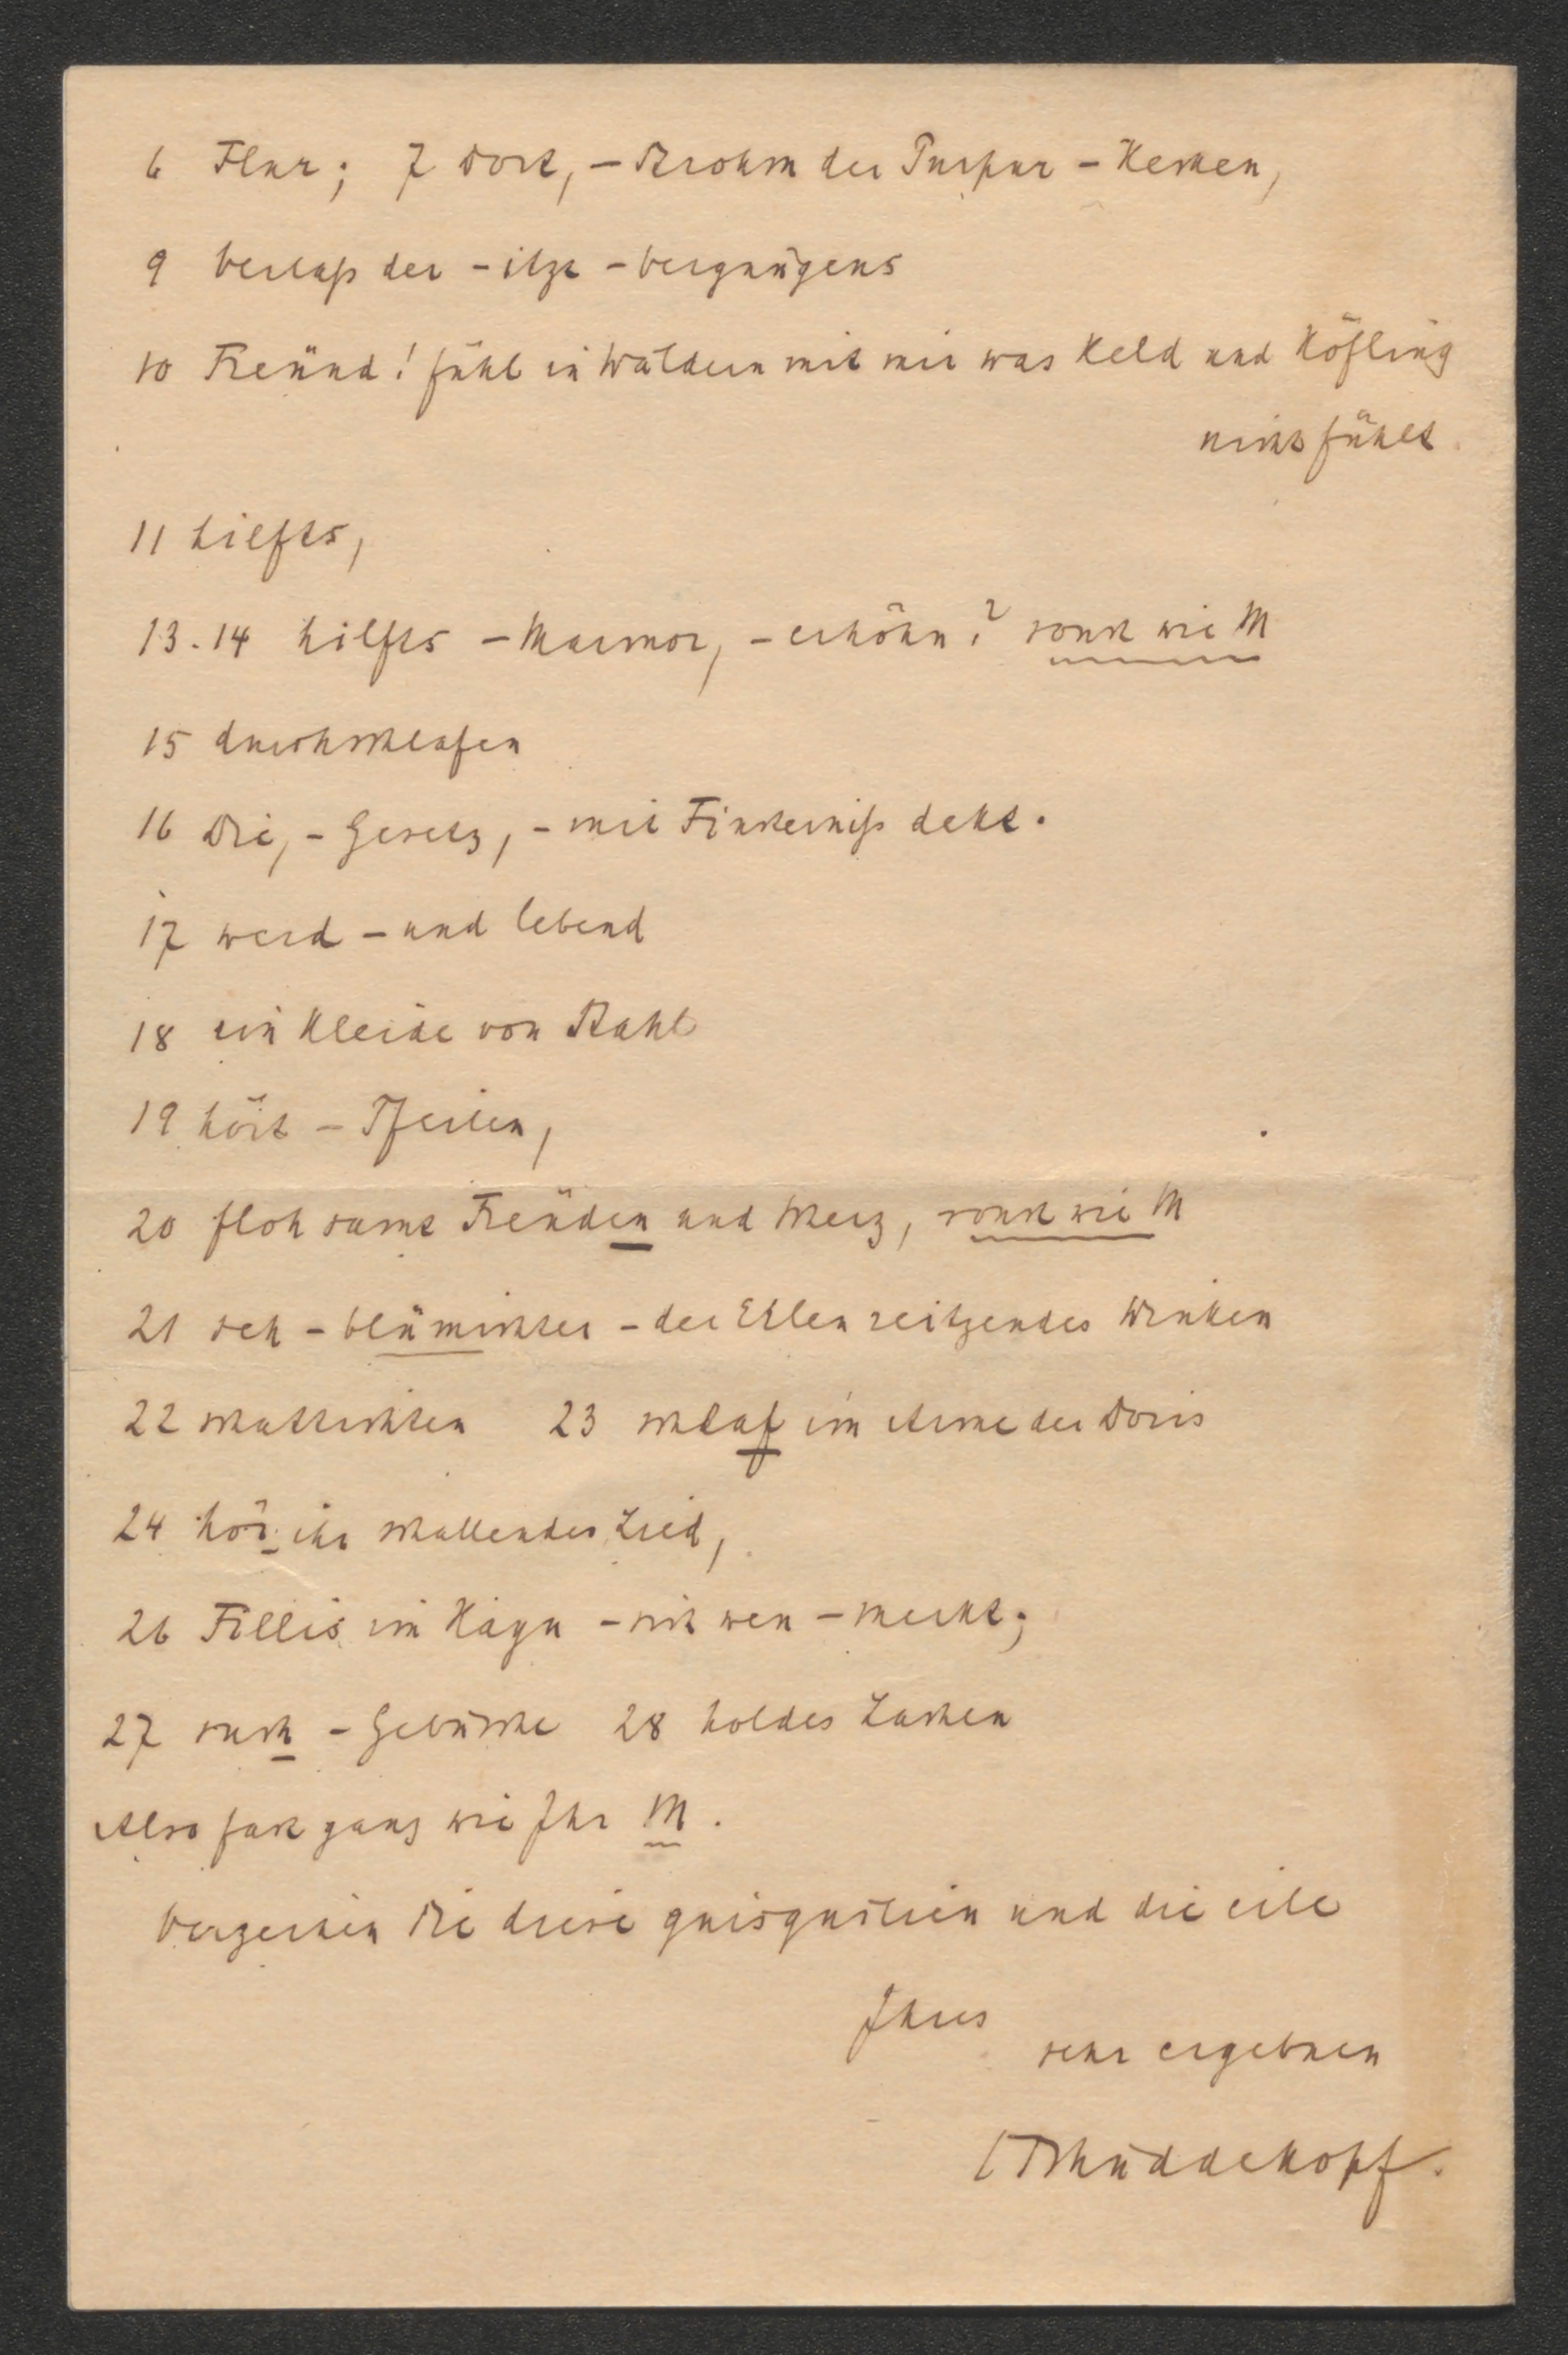 6 Flur; 7 Dort, – Strohm der Purpur – Kerken,
9 Verlaß der – itzt – Vergnügens
10 Freünd! fühl in Wäldern mit mir was Held und Höfling
nicht fühlt
11 hilfts,
13.14 hilfts – Marmor, – erhöhn? sonst wie M
15 durchschlafen
16 Die, – Gesetz, – mit Finsterniß dekt.
17 werd – und lebend
18 ein Kleid von Stahl
19 hört – Pfeilen,
20 floh samt Freüden und Scherz, sonst wie M
21 seh – blümichter – der Ellen reitzendes Winken
22 schattichten 23 schlaf im Arme der Doris
24 hör ihr schallendes Lied,
26 Fillis im Hayn – sich wen – merkt;
27 such – Gebüsche 28 holdes Lachen
Also fast ganz wie Ihr M.
Verzeihen Sie diese quisquilien und die eile
Ihres
sehr ergebnen
CSchüddekopf.